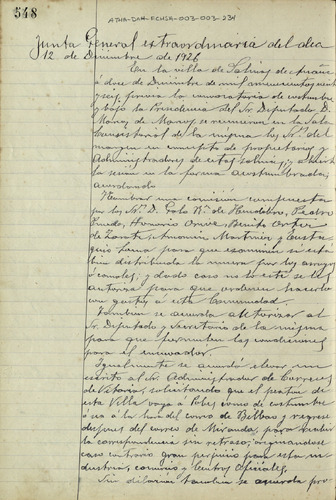 548
ATHA-DAH-ECHSA-003-003-234
Junta General extraordinaria del dia
12 de Diciembre de 1926
En la villa de Salinas de Añana
á doce de Diciembre de mil novecientos veinte
seis, previa la convocatoria de costumbre
y bajo la Presidencia del Sr. Diputado D.
se reunieron en la Sala
Consistorial de la misma los Srs. del
margen en concepto de propietarios y
Administradores de estas salinas, y abierta
la sesion en la forma acostumbrada,
acordando
Nombrar una comision compuesta
por los Srs. D. Pedro
Honorio Benito Ortiz
de Zarate, Antonio Martinez y
para que examinen si está
bien distribuida la muera por los
ó canales; y dado caso no lo esté se les
autoriza para que ordenen hacerlo
con gastos á esta Comunidad.
Tambien se acuerda autorizar al
Sr. Diputado y Secretario de la misma
para que formulen las condiciones
para el
Igualmente se acordó elevar un
escrito al Sr. Administrador de Correos
de Vitoria, solicitando que el peaton de
esta Villa vaya á Pobes como de costumbre
ó sea á la hora del correo de Bilbao y regrese
despues del correo de Miranda, para
la correspondencia sin retraso, originandose
caso contrario gran perjuicio para esta in
dustria, comercio y Centros Oficiales.
Sin dilacion tambien se acuerda pro